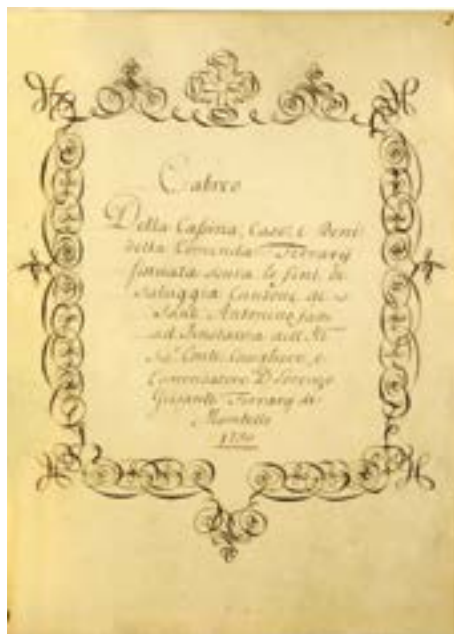 Cabreo
Della Cassina, Case, e Beni
della Comenda Ferrary
situata sovra le fini di
Salaggia Cantone di
Sant Antonino fatto
ad Instanza dell
Conte Cavagliere, e
Comendatore D Lorenzo
Ferrary di